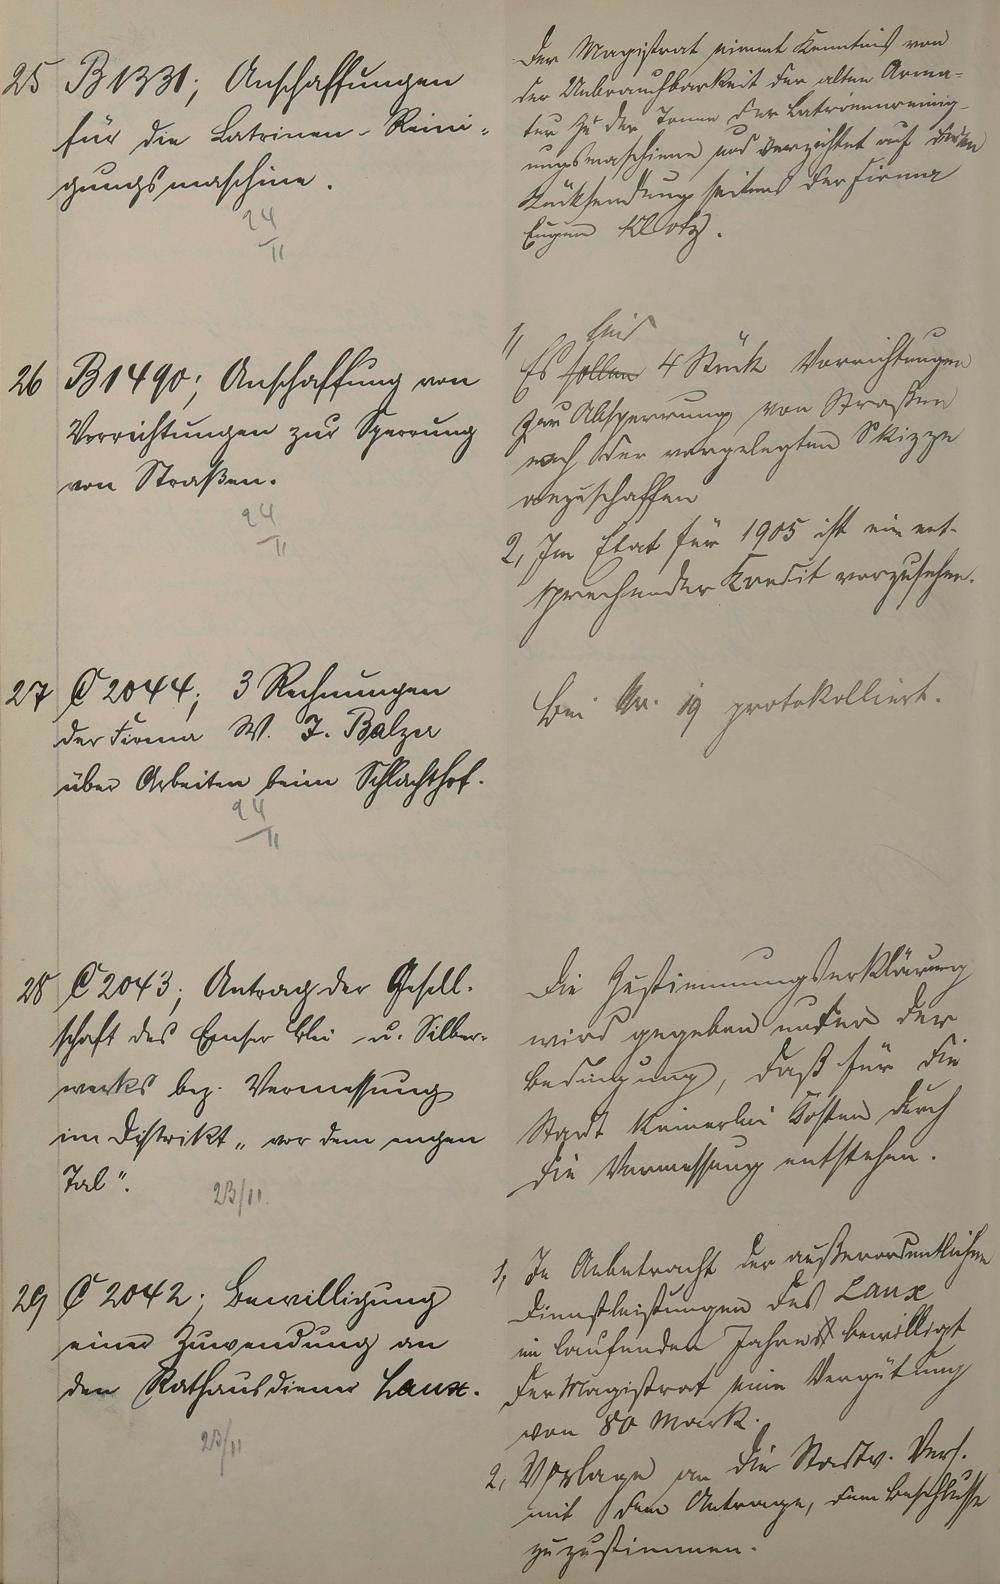 25 B 1331; Anschaffungen
für die Latrinen-Reini-
gungsmaschine.
24/11
Der Magistrat nimmt Kenntnis von
der Unbrauchbarkeit der alten Arma-
tur zu der Tonne der Latrinenreinig-
ungsmaschine und verzichtet auf deren
Rücksendung seitens der Firma
Eugen Klotz.
26 B 1490; Anschaffung von
Vorrichtungen zur Sperrung
von Straßen.
24/11
1, sind
Es sollen 4 Stück Vorrichtungen
zur Absperrung von Straßen
nach der vorgelegten Skizze
anzuschaffen
2, Im Etat für 1905 ist ein ent-
sprechender Kredit vorzusehen.
27 C 2044; 3 Rechnungen
der Firma W. J. Balzer
über Arbeiten beim Schlachthof.
24/11
Bei Nr. 19 protokolliert.
28 C 2043; Antrag der Gesell-
schaft des Emser Blei- u. Silber-
werks bez. Vermessung
im Distrikt „vor dem engen
Tal".
23/11.
Die Zustimmungserklärung
wird gegeben unter der
Bedingung, daß für die
Stadt keinerlei Kosten durch
die Vermessung entstehen.
29 C 2042; Bewilligung
einer Zuwendung an
den Rathausdiener Laux.
23/11
1, In Anbetracht der außerordentlichen
Dienstleistungen des Laux
im laufenden Jahre bewilligt
der Magistrat eine Vergütung
von 80 Mark.
2, Vorlage an die Stadtv. Vers.
mit dem Antrage, dem Beschlusse
zuzustimmen.